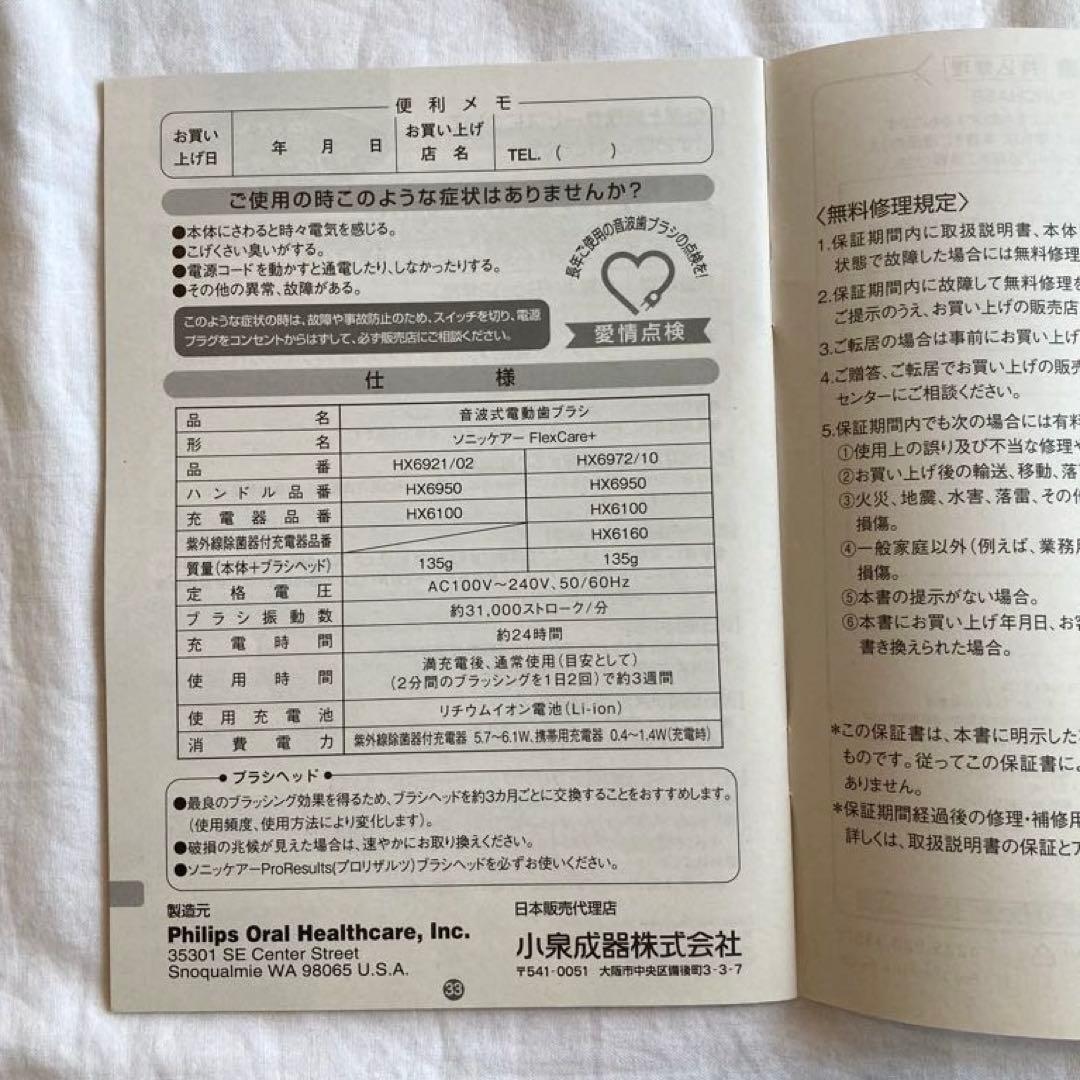 便利メモ
お買い上げ日 年 月 日 お買い上げ店名 TEL. ( )
ご使用の時このような症状はありませんか?
●本体にさわると時々電気を感じる。
●こげくさい臭いがする。
●電源コードを動かすと通電したり、しなかったりする。
●その他の異常、故障がある。
このような症状の時は、故障や事故防止のため、スイッチを切り、電源
プラグをコンセントからはずして、必ず販売店にご相談ください。
長年ご使用の音波歯ブラシの点検を!
愛情点検
仕様
品名 音波式電動歯ブラシ
形名 ソニッケアー FlexCare+
品番 HX6921/02 HX6972/10
ハンドル品番 HX6950 HX6950
充電器品番 HX6100 HX6100
紫外線除菌器付充電器品番 HX6160
質量(本体+ブラシヘッド) 135g 135g
定格電圧 AC100V〜240V、50/60Hz
ブラシ振動数 約31,000ストローク/分
充電時間 約24時間
使用時間 満充電後、通常使用(目安として)
(2分間のブラッシングを1日2回)で約3週間
使用充電池 リチウムイオン電池(Li-ion)
消費電力 紫外線除菌器付充電器 5.7〜6.1W、携帯用充電器 0.4〜1.4W(充電時)
●ブラシヘッド●
●最良のブラッシング効果を得るため、ブラシヘッドを約3カ月ごとに交換することをおすすめします。
(使用頻度、使用方法により変化します)。
●破損の兆候が見えた場合は、速やかにお取り換えください。
●ソニッケアーProResults(プロリザルツ)ブラシヘッドを必ずお使いください。
製造元
Philips Oral Healthcare, Inc.
35301 SE Center Street
Snoqualmie WA 98065 U.S.A.
日本販売代理店
小泉成器株式会社
〒541-0051 大阪市中央区備後町3-3-7
33
〈無料修理規定〉
1.保証期間内に取扱説明書、本体
状態で故障した場合には無料修理
2.保証期間内に故障して無料修理を
ご提示のうえ、お買い上げの販売店
3.ご転居の場合は事前にお買い上げ
4.ご贈答、ご転居でお買い上げの販売
センターにご相談ください。
5.保証期間内でも次の場合には有料
①使用上の誤り及び不当な修理や
②お買い上げ後の輸送、移動、落
③火災、地震、水害、落雷、その他
損傷。
④一般家庭以外(例えば、業務用
損傷。
⑤本書の提示がない場合。
⑥本書にお買い上げ年月日、お客
書き換えられた場合。
*この保証書は、本書に明示した
ものです。従ってこの保証書によ
ありません。
*保証期間経過後の修理・補修用
詳しくは、取扱説明書の保証とア